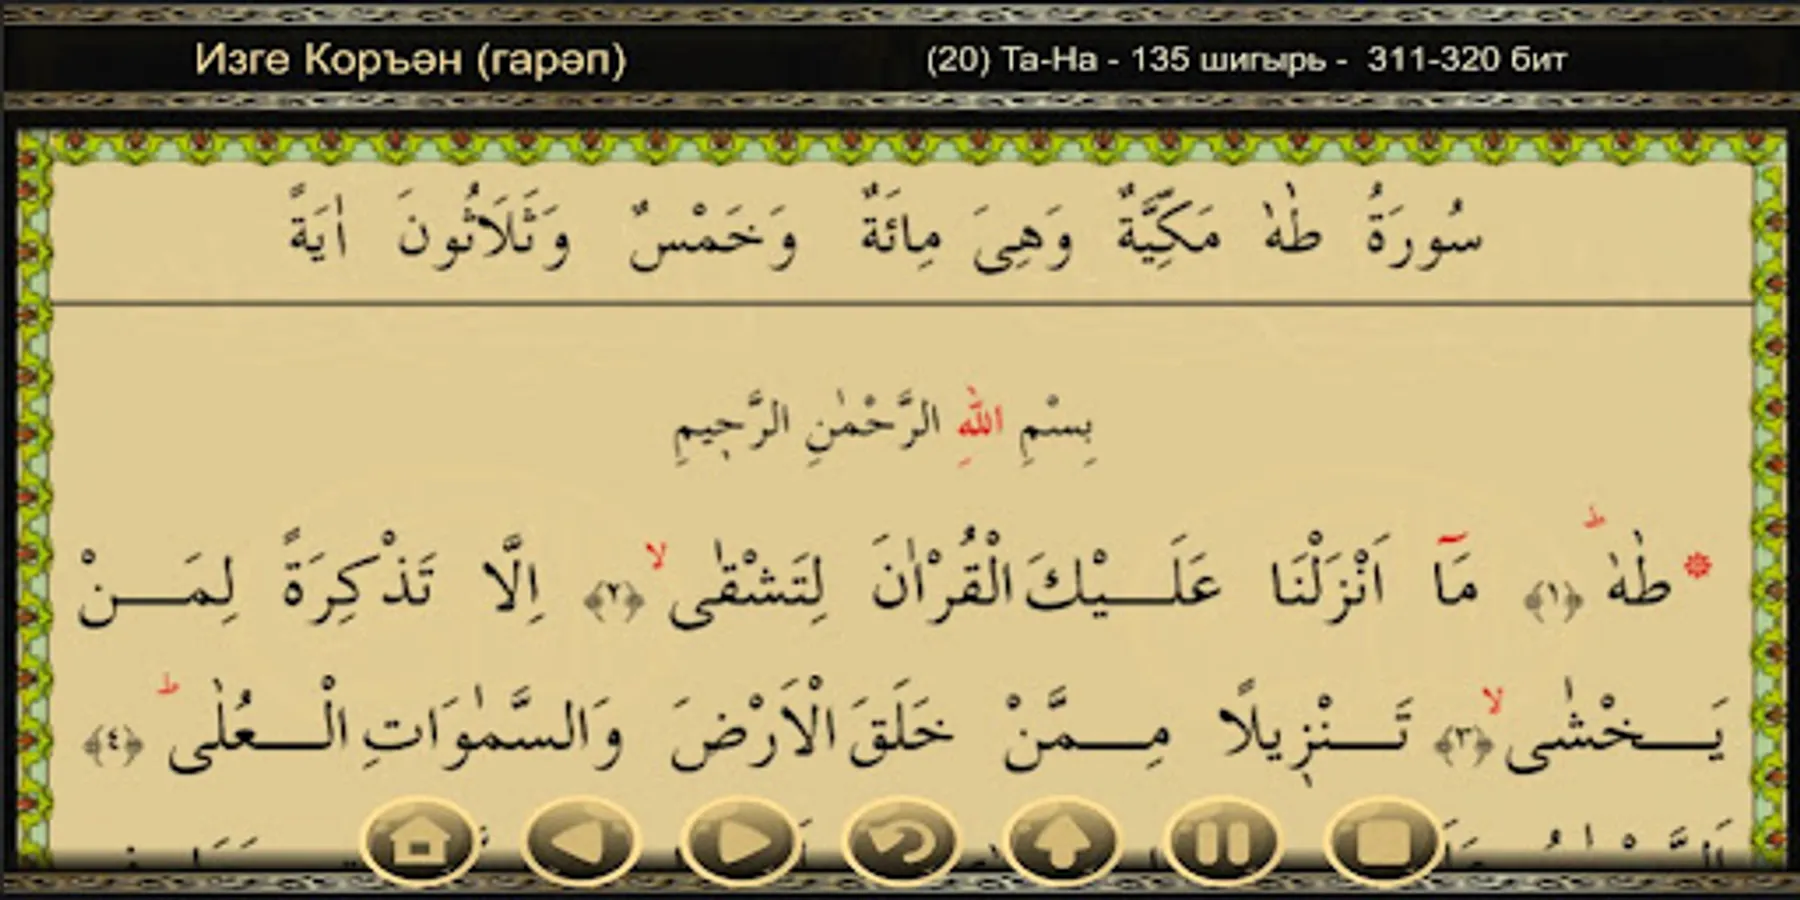 Изге Коръән (гарәп)
(20) Та-Һа - 135 шигырь - 311-320 бит
سُورَةُ طٰهٰ مَكِّيَّةٌ وَهِىَ مِائَةٌ وَخَمْسٌ وَثَلَاثُونَ اٰيَةً
بِسْمِ اللّٰهِ الرَّحْمٰنِ الرَّحٖيمِ
۞ طٰهٰ ؕ ﴿١﴾ مَٓا اَنْزَلْنَا عَلَـيْكَ الْقُرْاٰنَ لِتَشْقٰى ۙ ﴿٢﴾ اِلَّا تَذْكِرَةً لِمَـنْ
يَـخْشٰى ۙ ﴿٣﴾ تَـنْزٖيلًا مِـمَّنْ خَلَقَ الْاَرْضَ وَالسَّمٰوَاتِ الْـعُلٰى ؕ ﴿٤﴾